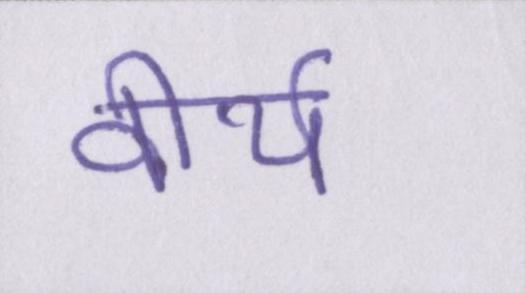 वीर्य